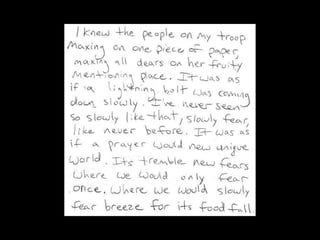 I knew the people on my troop
Maxing on one piece of paper,
maxing all dears on her fruity
mentioning place. It was as
if a lightning bolt was coming
down slowly. I've never seen
so slowly like that, slowly fear,
like never before. It was as
if a prayer would new unique
world. Its tremble new fears
where we would only fear
once. Where we would slowly
fear breeze for its food fall.